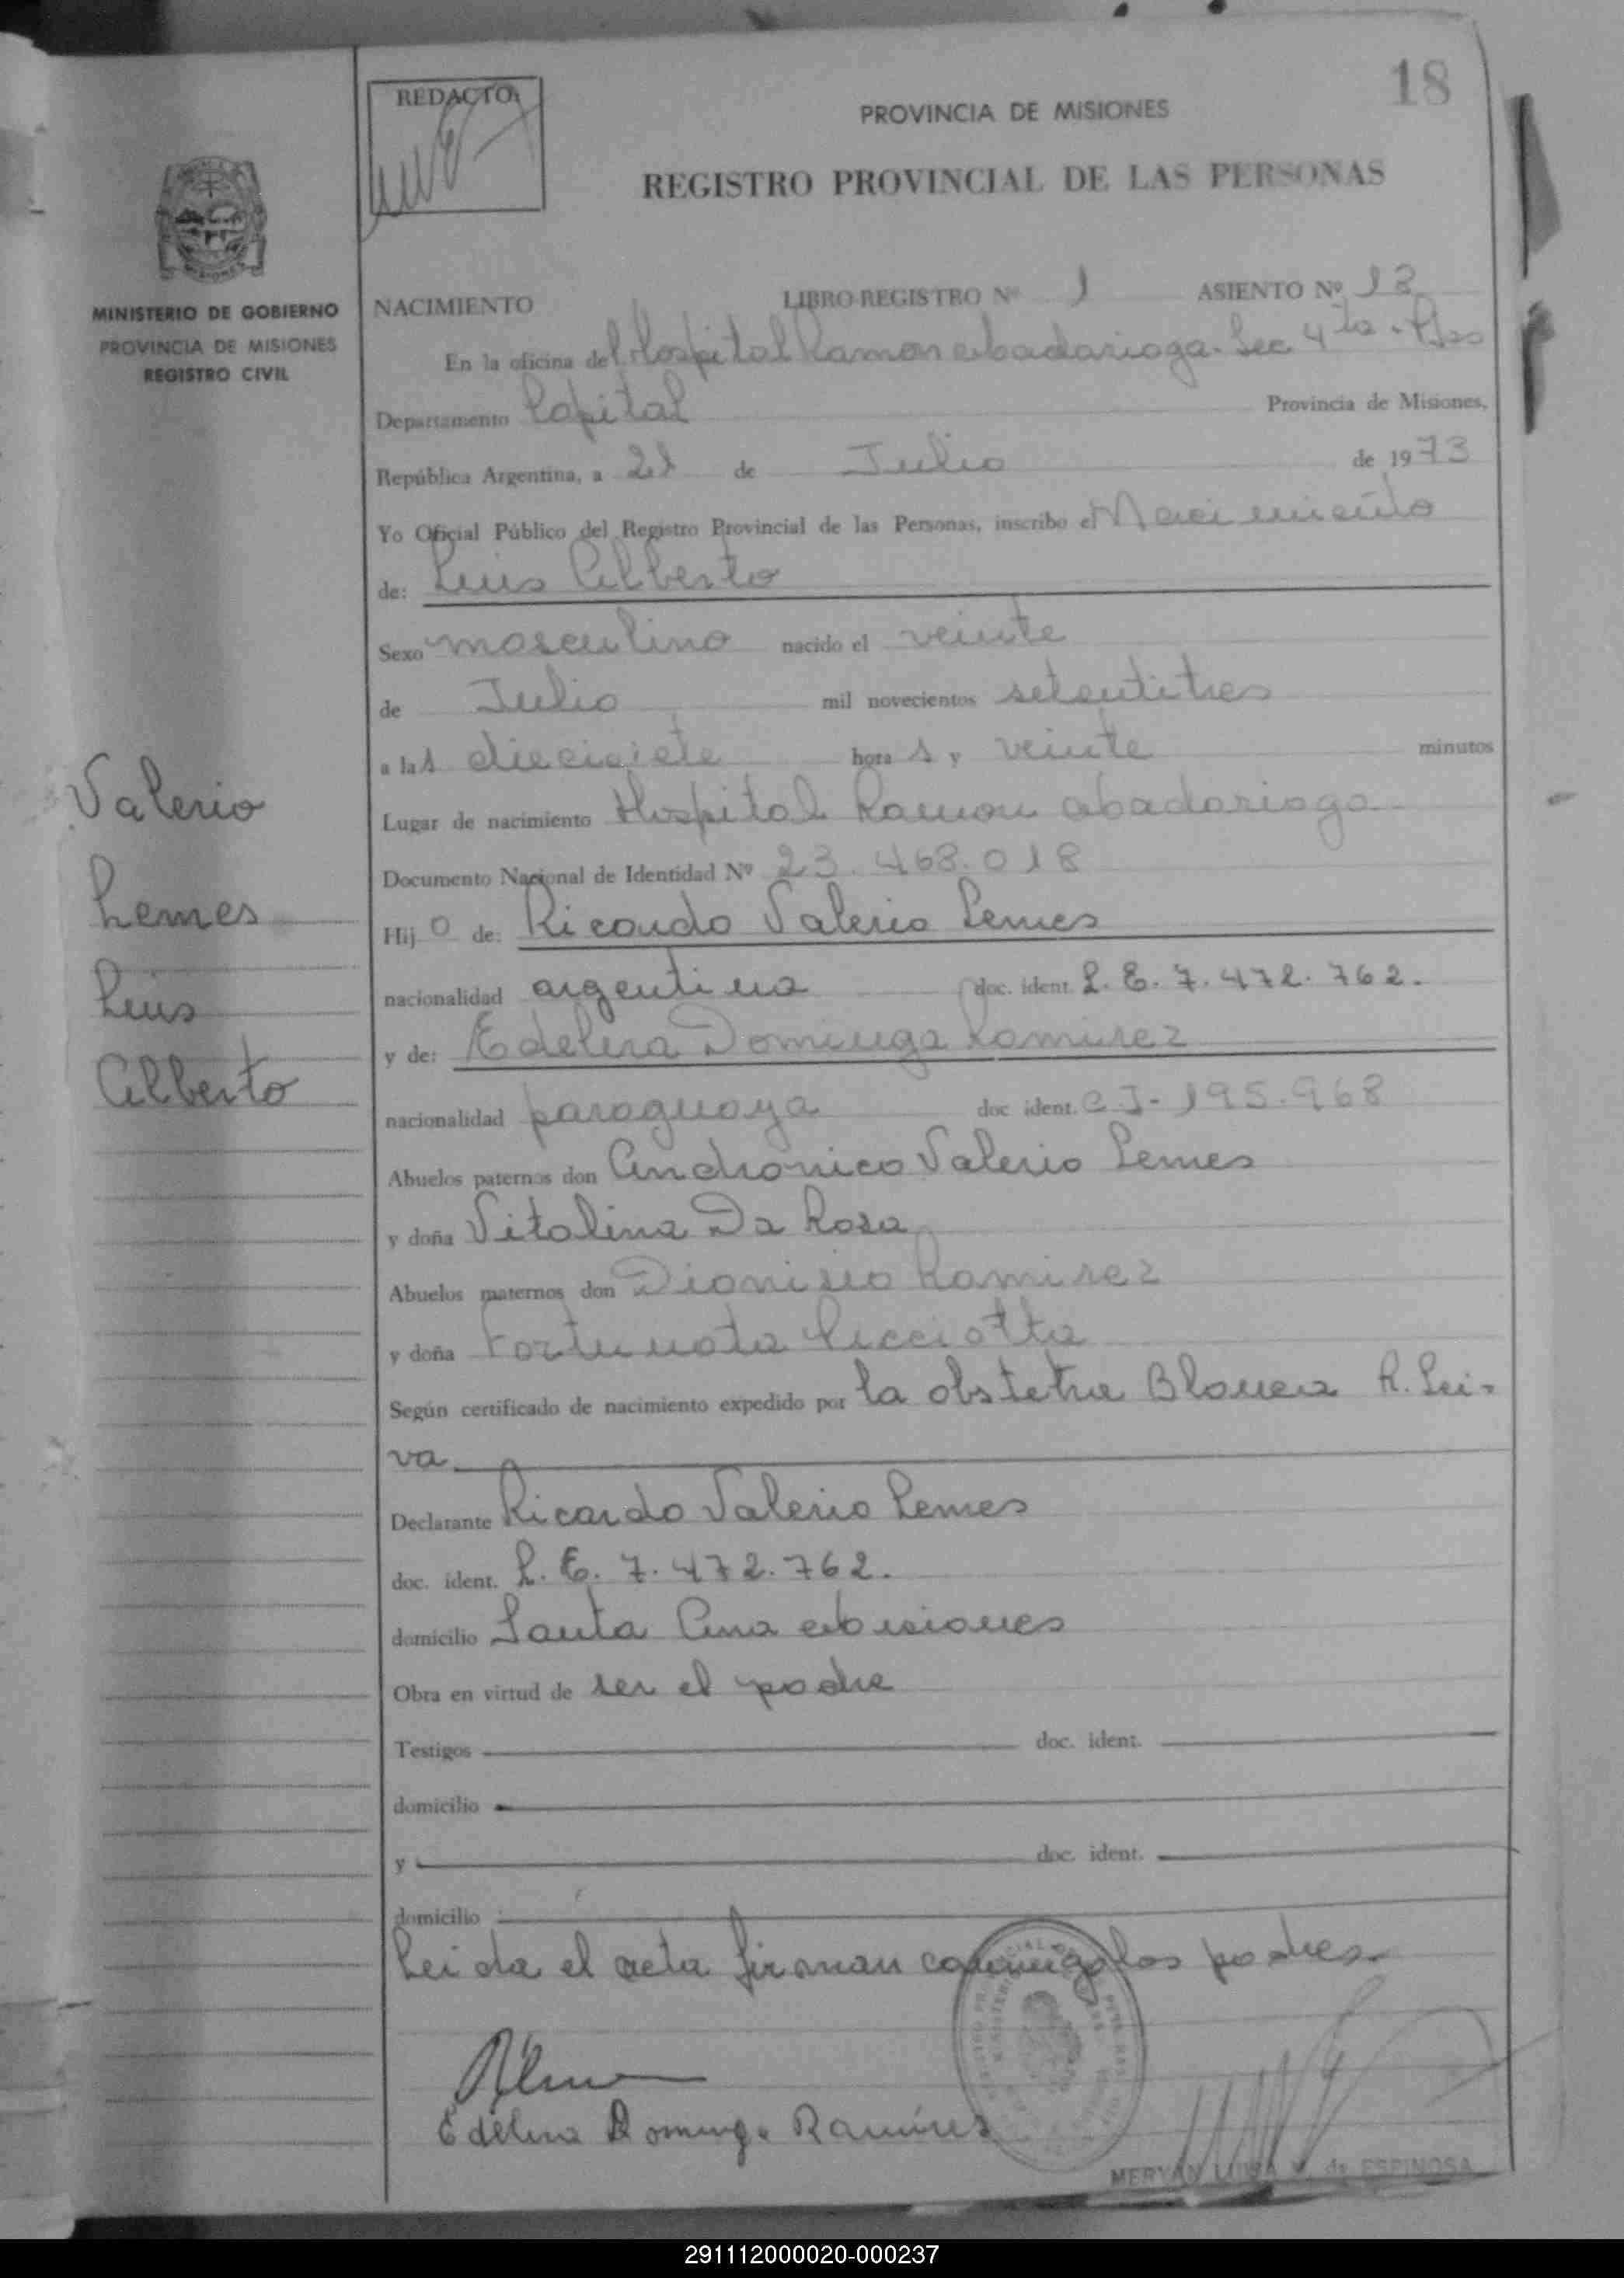 18
REDACTO:
PROVINCIA DE MISIONES
REGISTRO PROVINCIAL DE LAS PERSONAS
MINISTERIO DE GOBIERNO
PROVINCIA DE MISIONES
REGISTRO CIVIL
Valerio
Lemes
Luis
Alberto
NACIMIENTO LIBRO REGISTRO Nº 1 ASIENTO Nº 18
En la oficina del Hospital Ramon Madariaga. Sec 4ta
Departamento Capital Provincia de Misiones,
República Argentina, a 21 de Julio de 1973
Yo Oficial Público del Registro Provincial de las Personas, inscribo el Nacimiento
de: Luis Alberto
Sexo masculino nacido el veinte
de Julio mil novecientos setentitres
a las diecisiete horas y veinte minutos
Lugar de nacimiento Hospital Ramon Madariaga
Documento Nacional de Identidad Nº 23.468.018
Hijo de: Ricardo Valerio Lemes
nacionalidad argentina doc. ident. L.E. 7.472.762.
y de: Edelira Dominga Ramirez
nacionalidad paraguaya doc ident. C I- 195.968
Abuelos paternos don Andronico Valerio Lemes
y doña Vitalina Da Rosa
Abuelos maternos don Dionisio Ramirez
y doña Fortunata
Según certificado de nacimiento expedido por la obstetra Blanca R. Lei-
va
Declarante Ricardo Valerio Lemes
doc. ident. L.E. 7.472.762.
domicilio Santa Ana Misiones
Obra en virtud de ser el padre
Testigos doc. ident.
domicilio
y doc. ident.
domicilio
Leida el acta firman conmigo los padres.
Edelira Dominga Ramírez
MERYAN de ESPINOSA
291112000020-000237